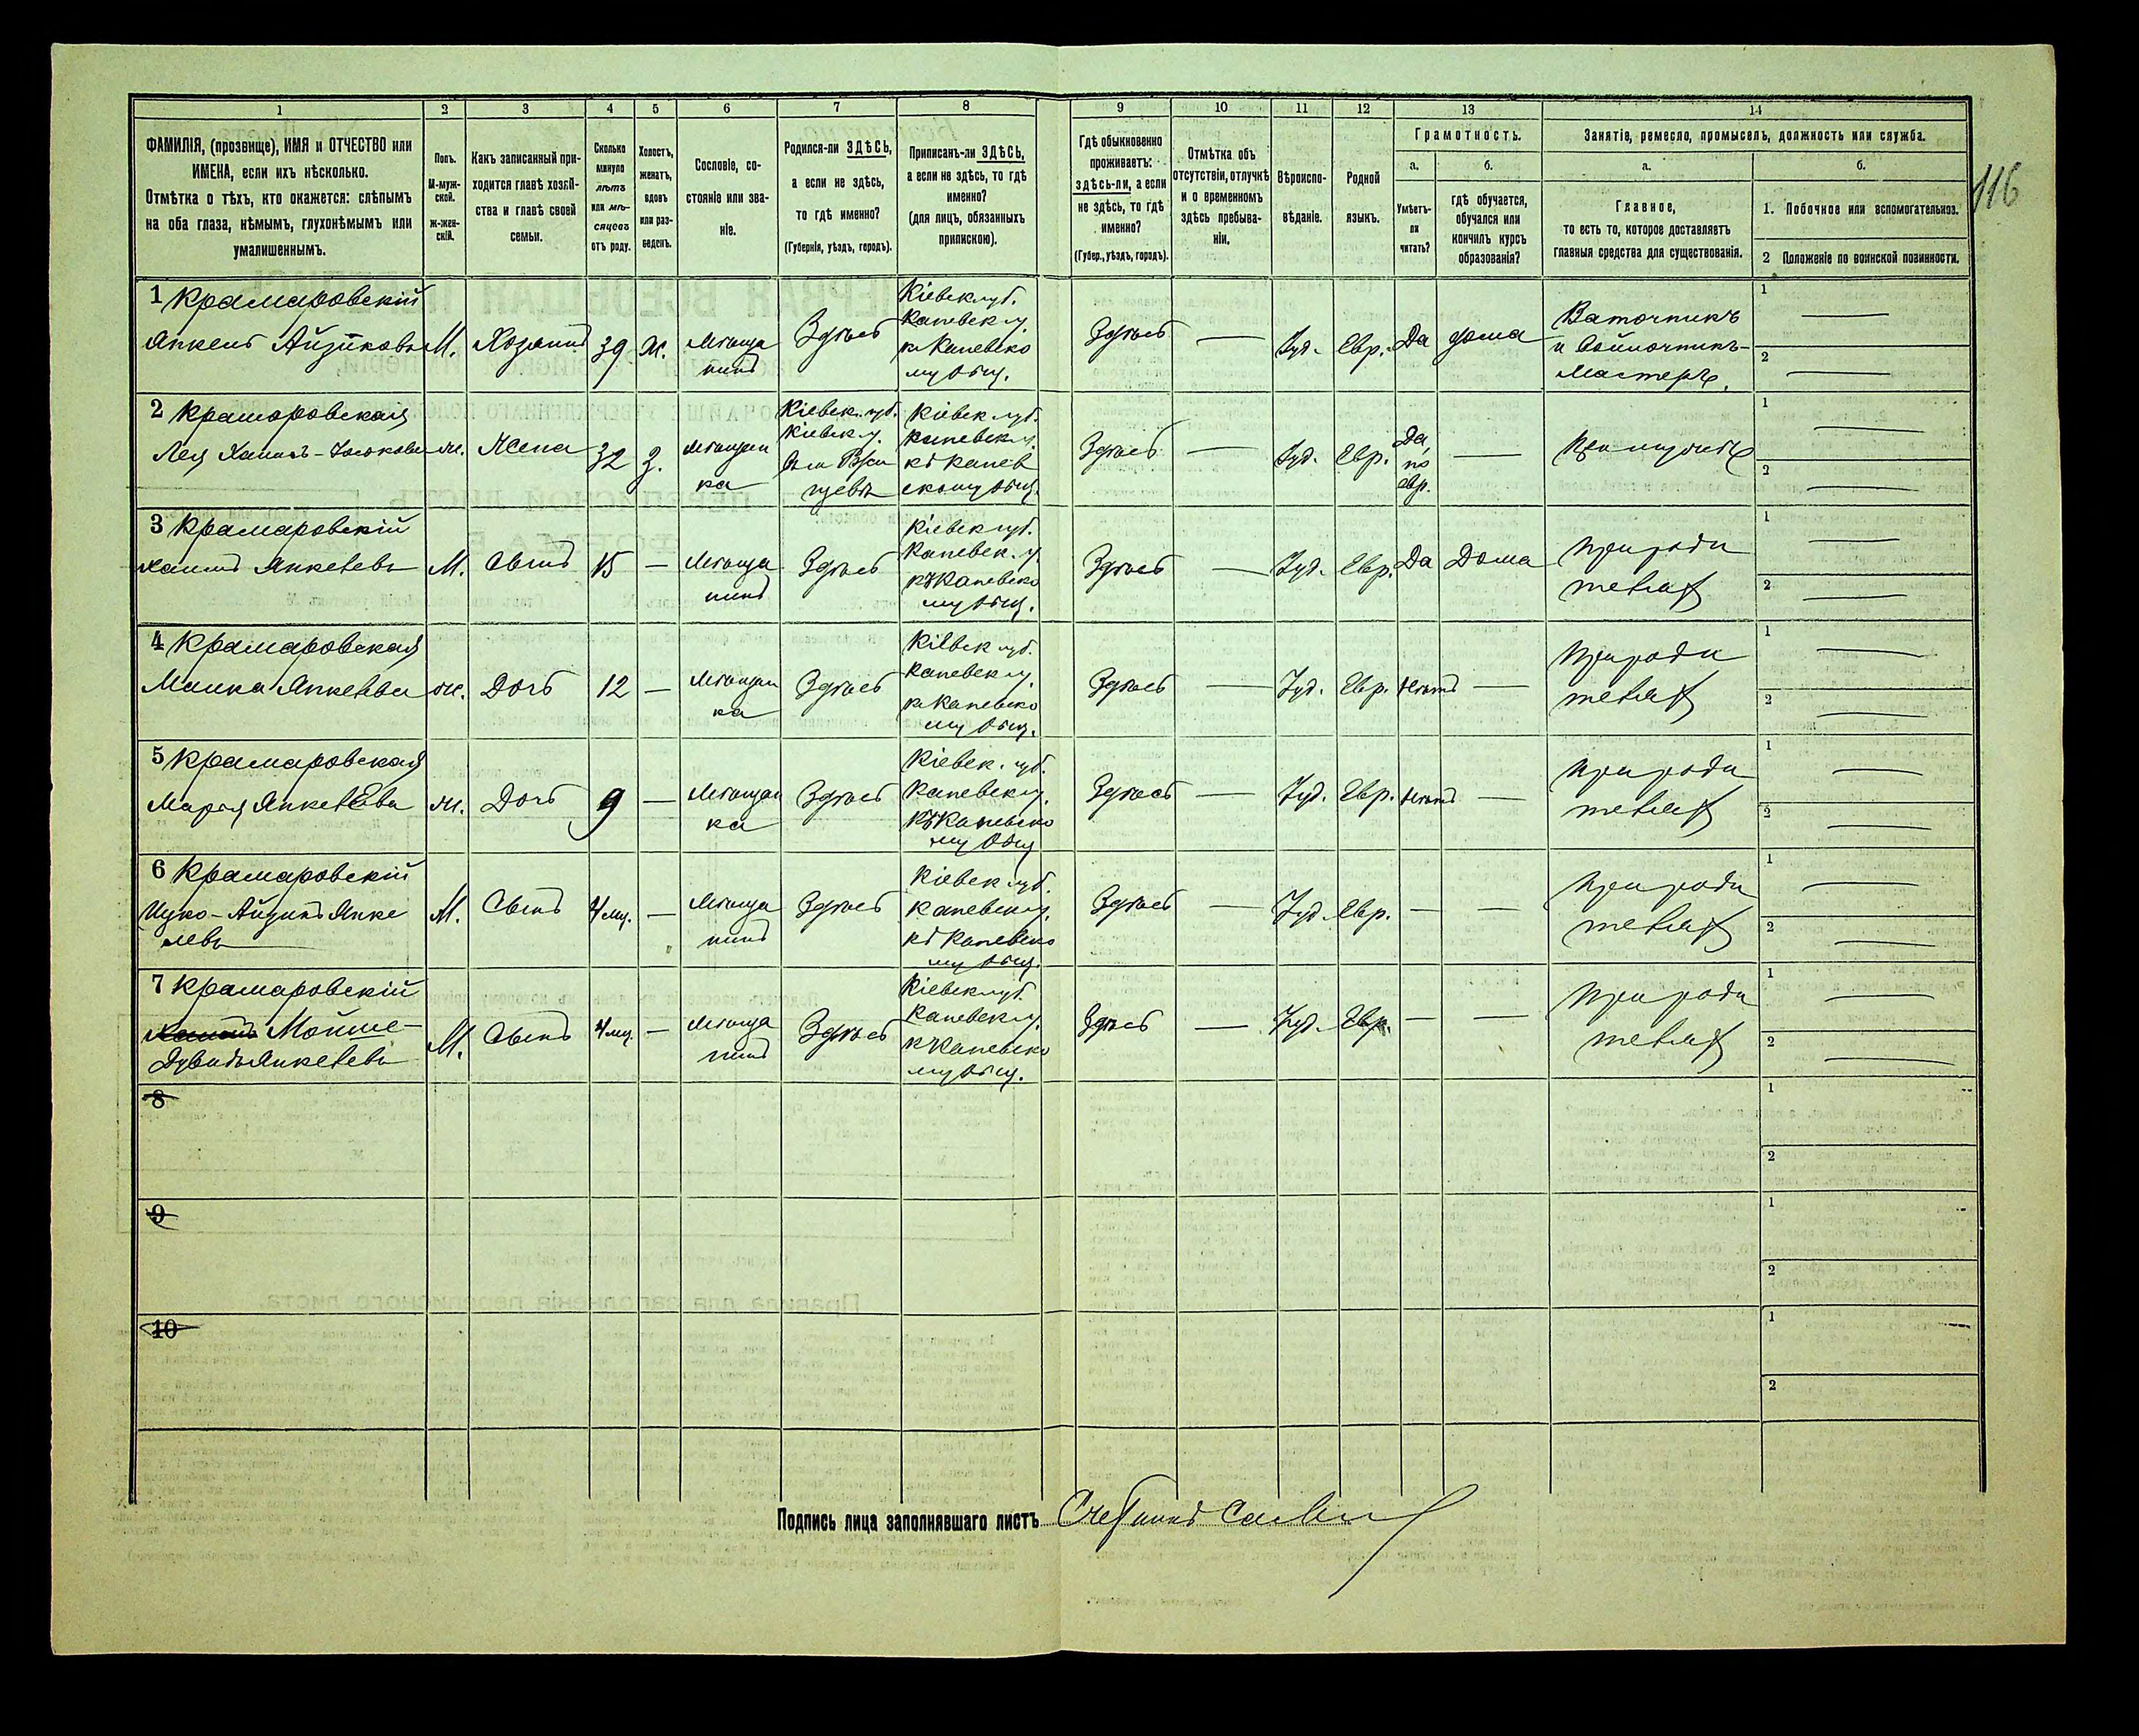 1 2 3 4 5 6 7 8 9 10 11 12 13 14
ФАМИЛІЯ, (прозвище), ИМЯ и ОТЧЕСТВО или
ИМЕНА, если ихъ нѣсколько.
Отмѣтка о тѣхъ, кто окажется: слѣпымъ
на оба глаза, нѣмымъ, глухонѣмымъ или
умалишеннымъ.
Полъ.
М-муж-
ской.
Ж-жен-
скій.
Какъ записанный при-
ходится главѣ хозяй-
ства и главѣ своей
семьи.
Сколько
минуло
лѣтъ
или мѣ-
сяцевъ
отъ роду.
Холостъ,
женатъ,
вдовъ
или раз-
веденъ.
Сословіе, со-
стояніе или зва-
ніе.
Родился-ли ЗДѢСЬ,
а если не здѣсь,
то гдѣ именно?
(Губернія, уѣздъ, городъ).
Приписанъ-ли ЗДѢСЬ,
а если не здѣсь, то гдѣ
именно?
(для лицъ, обязанныхъ
припискою).
Гдѣ обыкновенно
проживаетъ:
здѣсь-ли, а если
не здѣсь, то гдѣ
именно?
(Губер., уѣздъ, городъ).
Отмѣтка объ
отсутствіи, отлучкѣ
и о временномъ
здѣсь пребыва-
ніи.
Вѣроиспо-
вѣданіе.
Родной
языкъ.
Грамотность.
а.
Умѣетъ-
ли
читать?
б.
гдѣ обучается,
обучался или
кончилъ курсъ
образованія?
Занятіе, ремесло, промыселъ, должность или служба.
а.
Главное,
то есть то, которое доставляетъ
главныя средства для существованія.
б.
1. Побочное или вспомогательное.
2 Положеніе по воинской повинности.
116
1 Крамаровскій
Янкель Айзиковъ
М. Хозяинъ 39 Ж.
Мѣща
нинъ
Здѣсь
Кіевск губ.
Каневск у.
къ Каневско
му общ.
Здѣсь — Іуд. Евр. Да дома
Ваточникъ
и войлочникъ-
мастеръ.
1 —
2 —
2 Крамаровская
Лея Хаимъ-
ж. Жена 32 З.
Мѣщан
ка
Кіевск. губ.
Кіевск у.
Кіевск губ.
Каневск у.
къ Канев
скому общ.
Здѣсь — Іуд. Евр.
Да,
по
евр.
—
При мужѣ
1 —
2 —
3 Крамаровскій
Хаимъ Янкелевъ
М. Сынъ 15 —
Мѣща
нинъ
Здѣсь
Кіевск губ.
Каневск. у.
къ Каневско
му общ.
Здѣсь — Іуд. Евр. Да Дома
При роди
теляхъ
1 —
2 —
4 Крамаровская
Малка Янкелева
ж. Дочь 12 —
Мѣщан
ка
Здѣсь
Кіевск губ.
Каневск у.
къ Каневско
му общ.
Здѣсь — Іуд. Евр. Нѣтъ —
При роди
теляхъ
1 —
2 —
5 Крамаровская
Марья Янкелева
ж. Дочь 9 —
Мѣщан
ка
Здѣсь
Кіевск. губ.
Каневск у.
къ Каневско
му общ
Здѣсь — Іуд. Евр. Нѣтъ —
При роди
теляхъ
1 —
2 —
6 Крамаровскій
Ицко-Айзикъ Янке
левъ
М. Сынъ 4 мц. —
Мѣща
нинъ
Здѣсь
Кіевск губ.
Каневск у.
къ Каневско
му общ.
Здѣсь — Іуд. Евр. — —
При роди
теляхъ
1 —
2 —
7 Крамаровскій
Хаимъ Мойше-
Дувидъ Янкелевъ
М. Сынъ 4 мц. —
Мѣща
нинъ
Здѣсь
Кіевск губ.
Каневск у.
къ Каневско
му общ.
Здѣсь — Іуд. Евр. — —
При роди
теляхъ
1 —
2 —
8
1
2
9
1
2
10
1
2
Подпись лица заполнявшаго листъ Счетчикъ